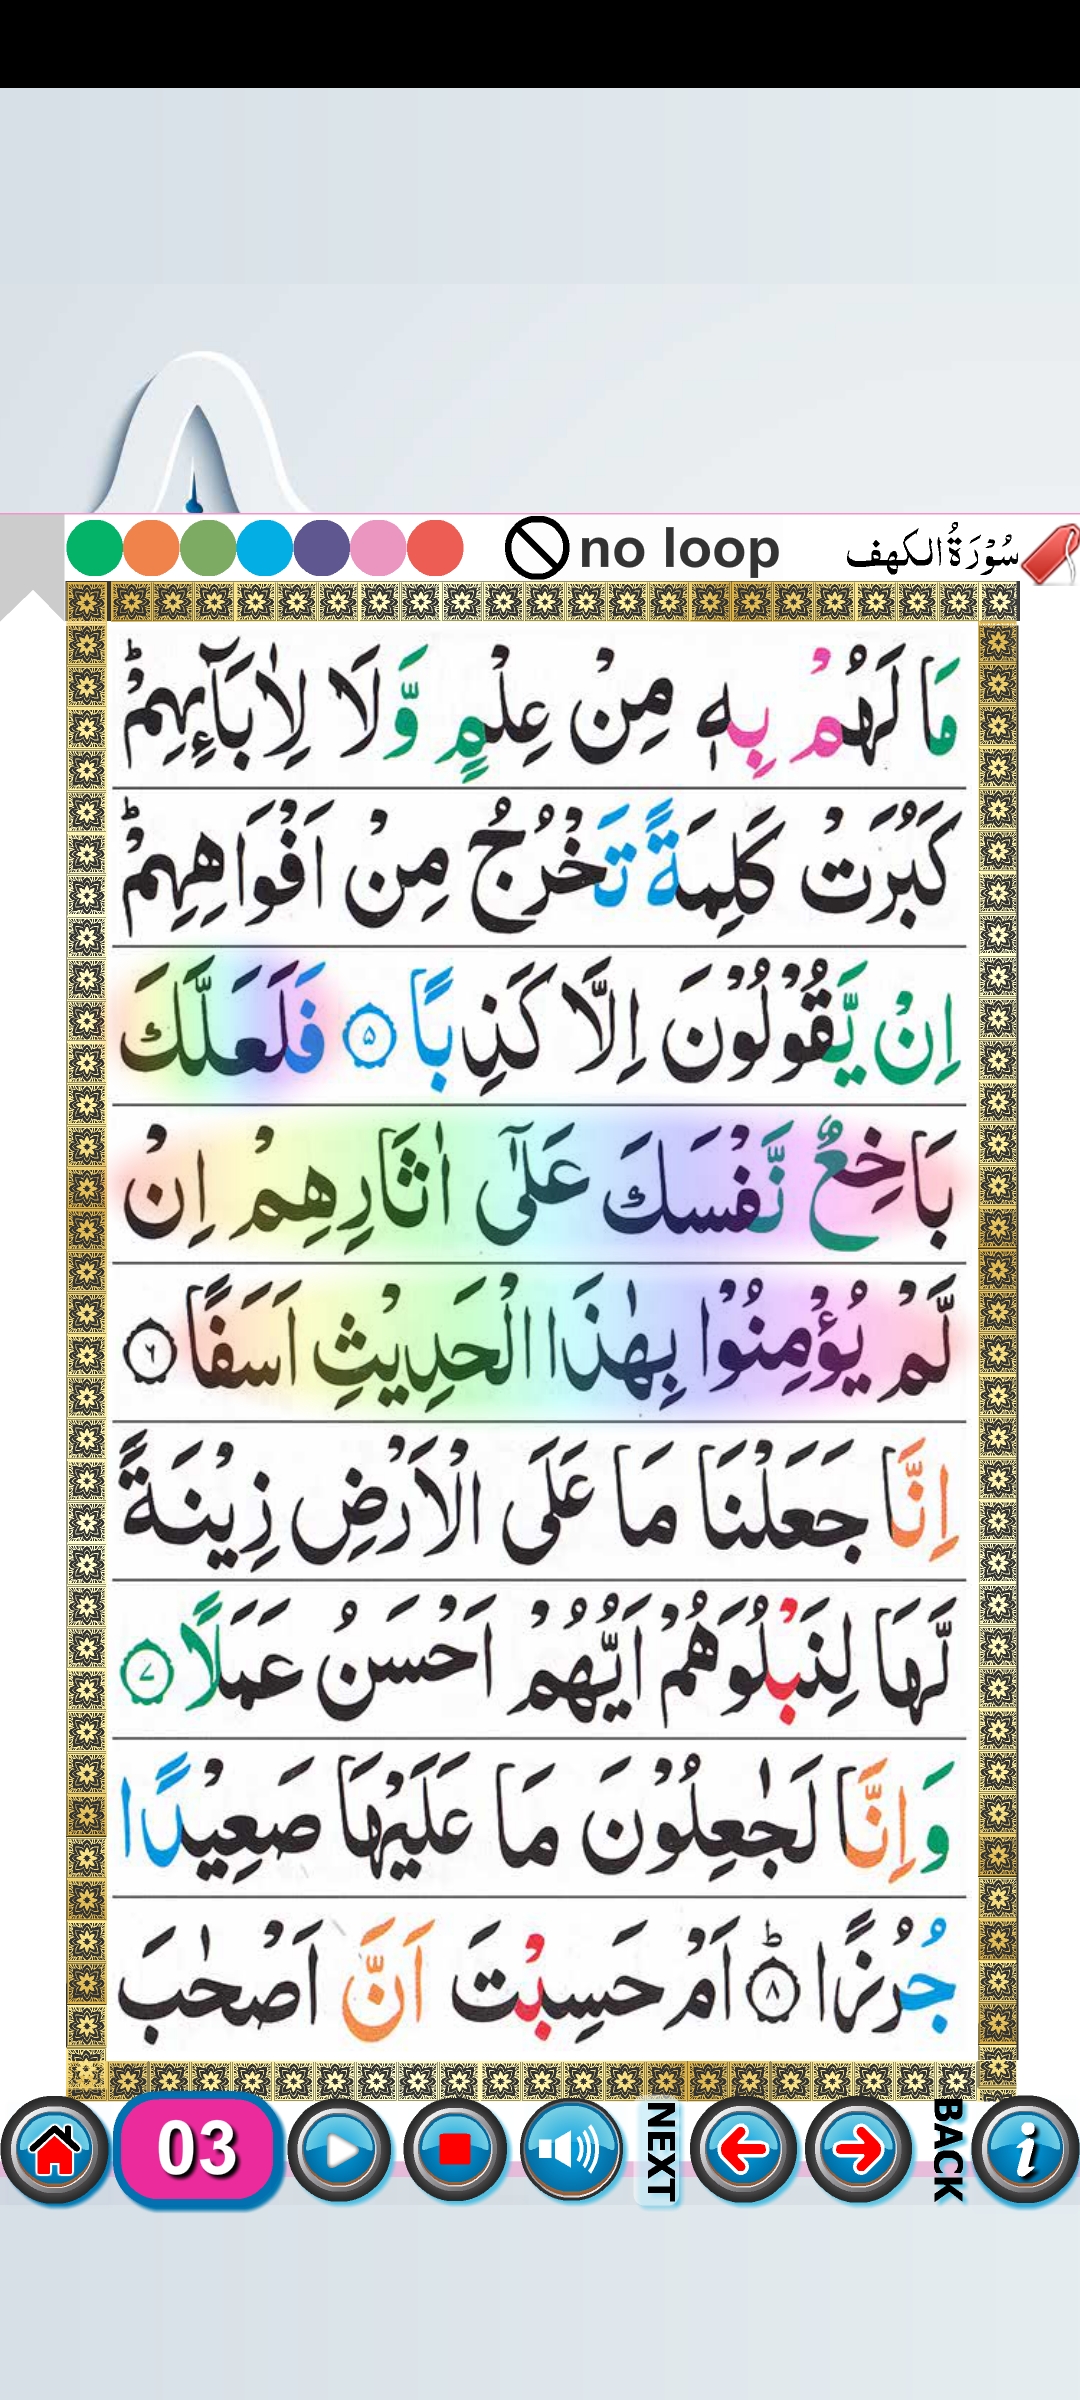 no loop
سُوْرَةُ الكهف
مَا لَهُمْ بِهٖ مِنْ عِلْمٍ وَّلَا لِاٰبَآئِهِمْ ؕ
كَبُرَتْ كَلِمَةً تَخْرُجُ مِنْ اَفْوَاهِهِمْ ؕ
اِنْ يَّقُوْلُوْنَ اِلَّا كَذِبًا ۵ فَلَعَلَّكَ
بَاخِعٌ نَّفْسَكَ عَلٰٓى اٰثَارِهِمْ اِنْ
لَّمْ يُؤْمِنُوْا بِهٰذَا الْحَدِيْثِ اَسَفًا ۶
اِنَّا جَعَلْنَا مَا عَلَى الْاَرْضِ زِيْنَةً
لَّهَا لِنَبْلُوَهُمْ اَيُّهُمْ اَحْسَنُ عَمَلًا ۷
وَاِنَّا لَجٰعِلُوْنَ مَا عَلَيْهَا صَعِيْدًا
جُرُزًا ۸ؕ اَمْ حَسِبْتَ اَنَّ اَصْحٰبَ
03 NEXT BACK i